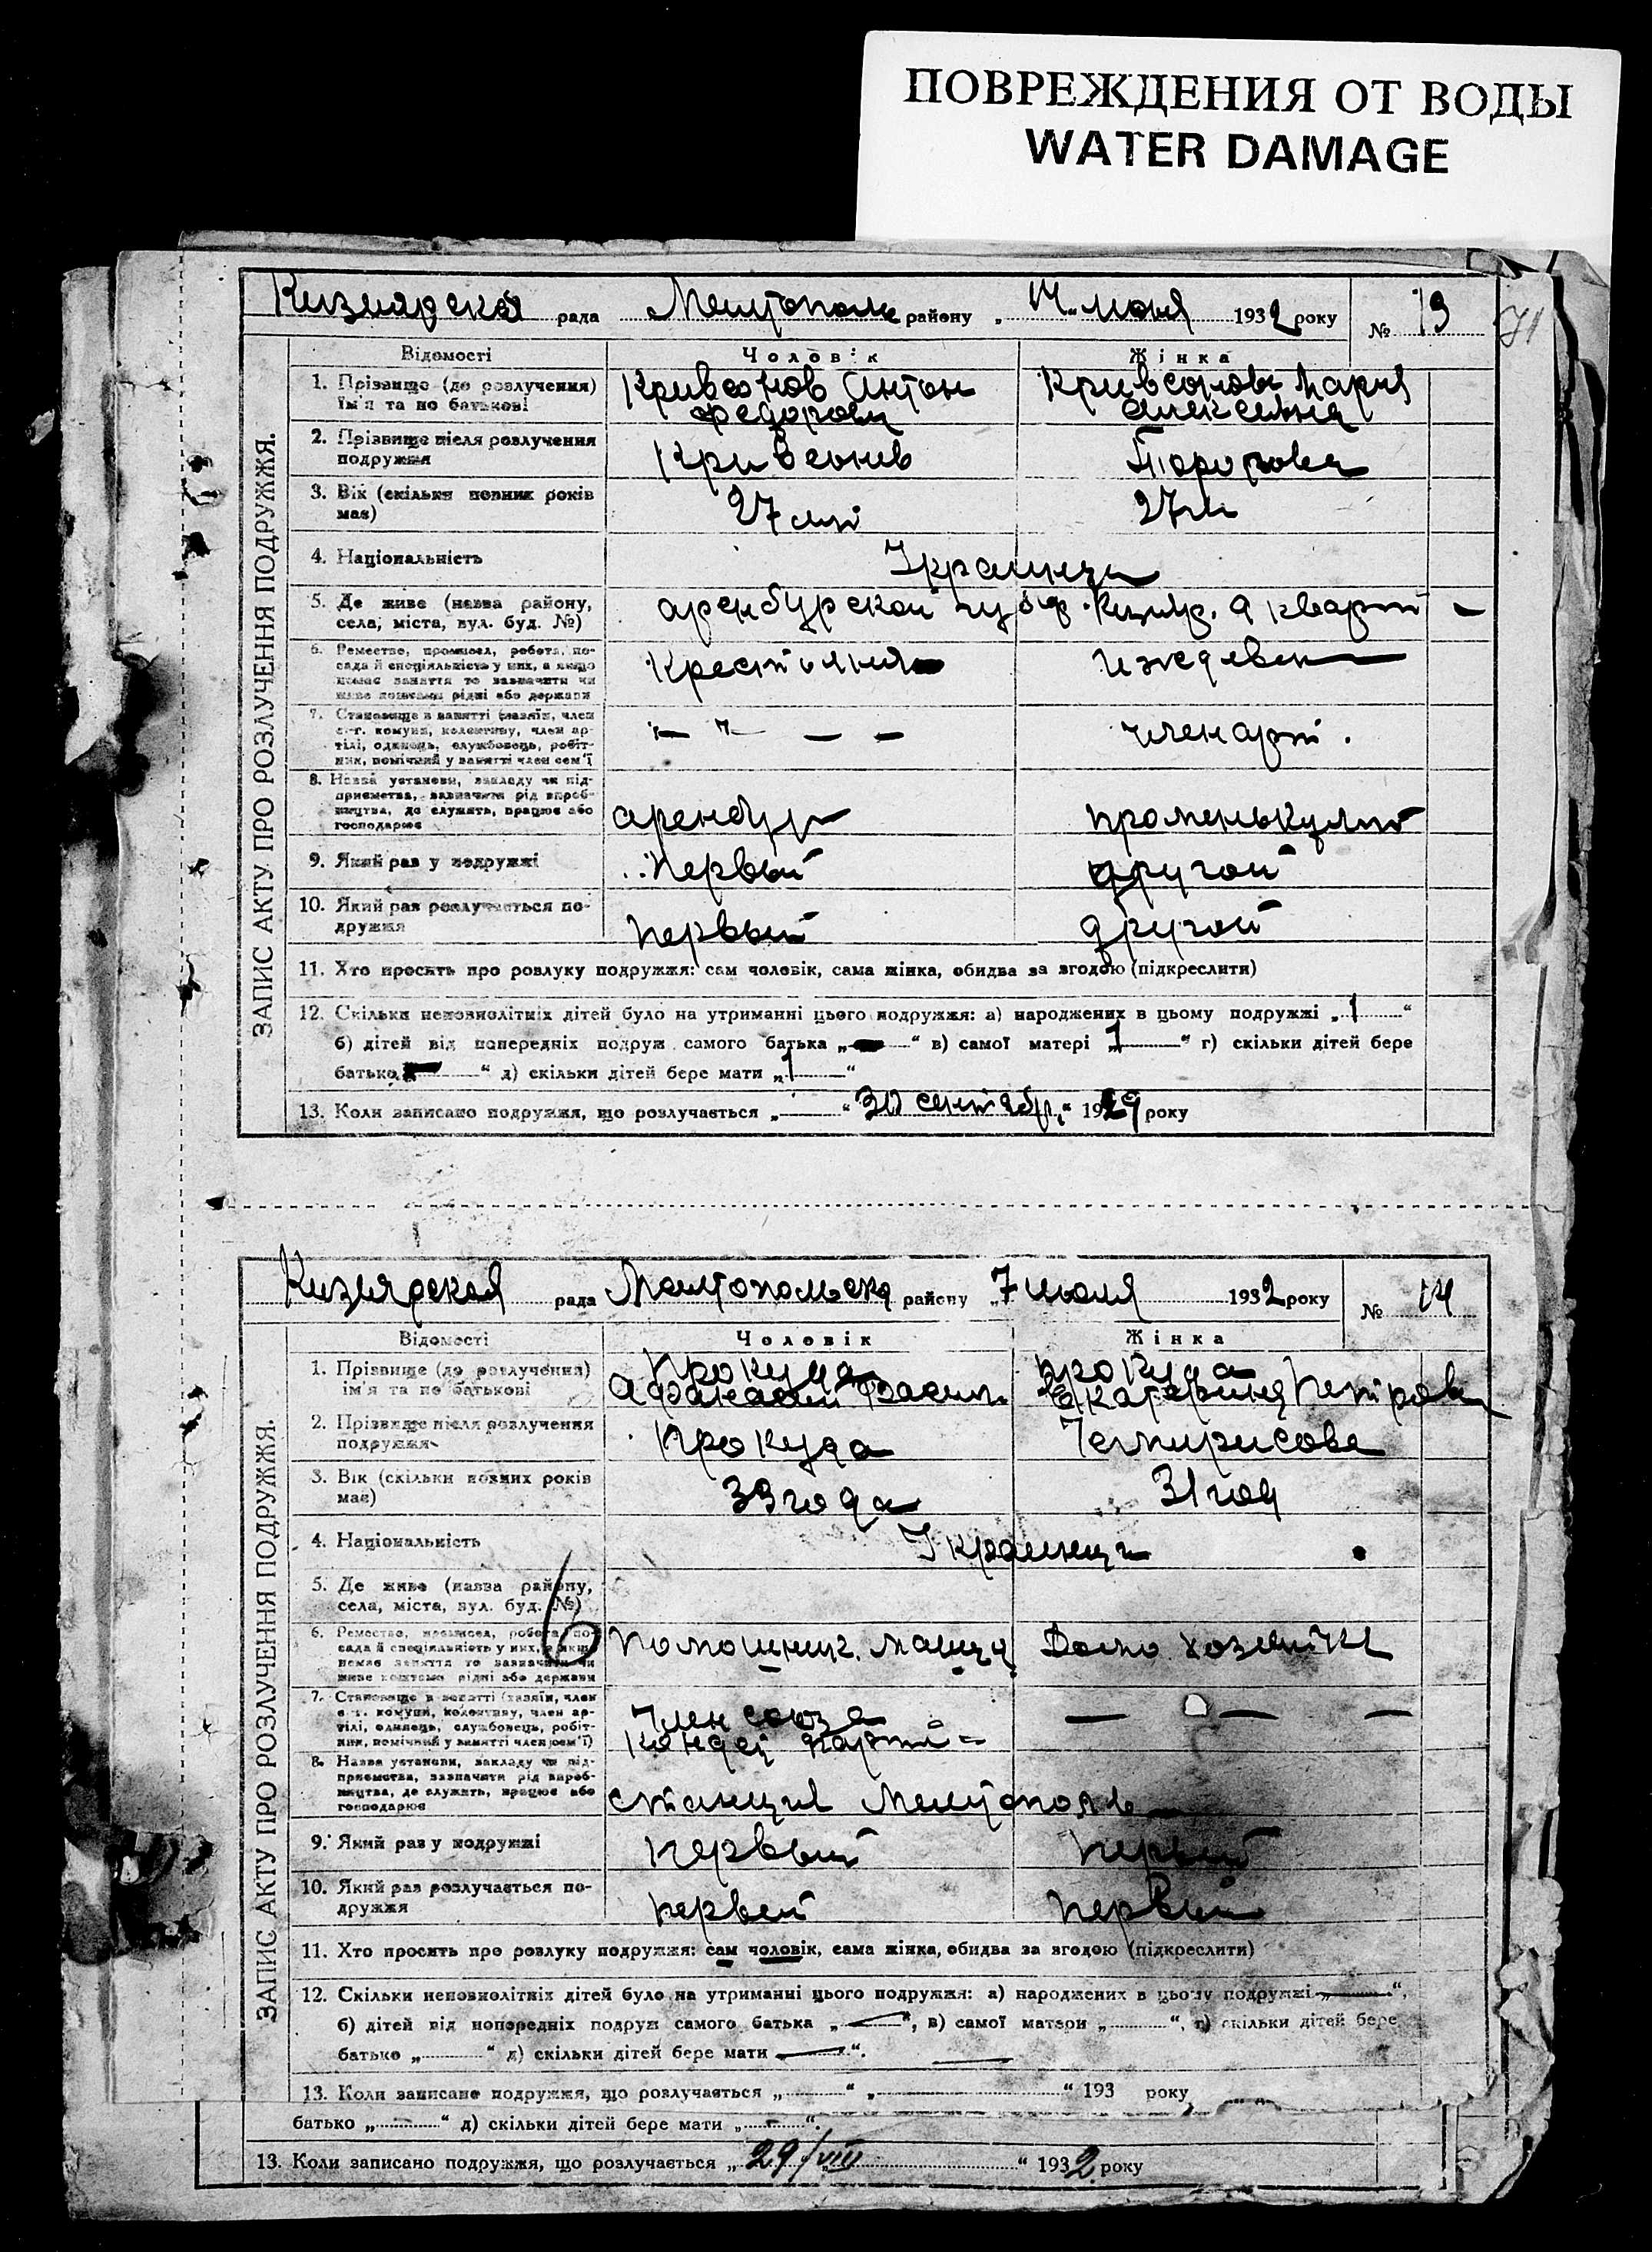 ПОВРЕЖДЕНИЯ ОТ ВОДЫ
WATER DAMAGE
Кизиярская рада Мелитополь району „17„ июня 1932 року № 13
71
ЗАПИС АКТУ ПРО РОЗЛУЧЕННЯ ПОДРУЖЖЯ.
Відомості Чоловік Жінка
1. Прізвище (до розлучення) ім'я та по батькові
Кривсонов Антон
Кривсонова Мария
Алексеевна
2. Прізвище після розлучення подружжя
Кривсонов
3. Вік (скільки повних років має)
27 лет
27 л
4. Національність
Украинцы
5. Де живе (назва району, села, міста, вул. буд. №)
аренбурской губ. 9 кварт —
6. Ремество, промисел, робота, посада й спеціяльність у них, а якщо немає заняття то зазначити чи живе коштами рідні або держави
иждевен
7. Становище в занятті (хазяїн, член с.-г. комуни, колективу, член артілі, одинець, службовець, робітник, помічний у занятті член сем'ї
— — — —
член арт.
8. Назва установи, закладу чи підприємства, зазначити рід виробництва, де служить, працює або господарює
аренбур
9. Який раз у подружжі
первый
другой
10. Який раз розлучається подружжя
первый
другой
11. Хто просить про розлуку подружжя: сам чоловік, сама жінка, обидва за згодою (підкреслити)
12. Скільки неповнолітніх дітей було на утриманні цього подружжя: а) народжених в цьому подружжі „1“
б) дітей від попередніх подруж самого батька „—“ в) самої матері „1“ г) скільки дітей бере
батько „—“ д) скільки дітей бере мати „1“
13. Коли записано подружжя, що розлучається „ “ 30 сентябр „ 1929 року
Кизиярская рада Мелитопольска району „7 июля 1932 року № 14
ЗАПИС АКТУ ПРО РОЗЛУЧЕННЯ ПОДРУЖЖЯ.
Відомості Чоловік Жінка
1. Прізвище (до розлучення) ім'я та по батькові
Прокуда
Афанасий
Прокуда
Екатерина Петровн
2. Прізвище після розлучення подружжя
Прокуда
3. Вік (скільки повних років має)
33 года
31 год
4. Національність
Украинцы
5. Де живе (назва району, села, міста, вул. буд. №)
6. Ремество, промисел, робота, посада й спеціяльність у них, а якщо немає заняття то зазначити чи живе коштами рідні або держави
Помошник. машин.
Домо хозяйка
7. Становище в занятті (хазяїн, член с.-г. комуни, колективу, член артілі, одинець, службовець, робітник, помічний у занятті член сем'ї)
Член союза
Кандид партии
— — —
8. Назва установи, закладу чи підприємства, зазначити рід виробництва, де служить, працює або господарює
станция Мелитополь
9. Який раз у подружжі
первый
первый
10. Який раз розлучається подружжя
первый
первый
11. Хто просить про розлуку подружжя: сам чоловік, сама жінка, обидва за згодою (підкреслити)
12. Скільки неповнолітніх дітей було на утриманні цього подружжя: а) народжених в цьому подружжі „—“,
б) дітей від попередніх подруж самого батька „—“, в) самої матери „ “, г) скільки дітей бере
батько „ “ д) скільки дітей бере мати „—“.
13. Коли записано подружжя, що розлучається „ “ „ “ 193 року
батько „ “ д) скільки дітей бере мати „ “.
13. Коли записано подружжя, що розлучається „ 29/VIII “ 1932 року